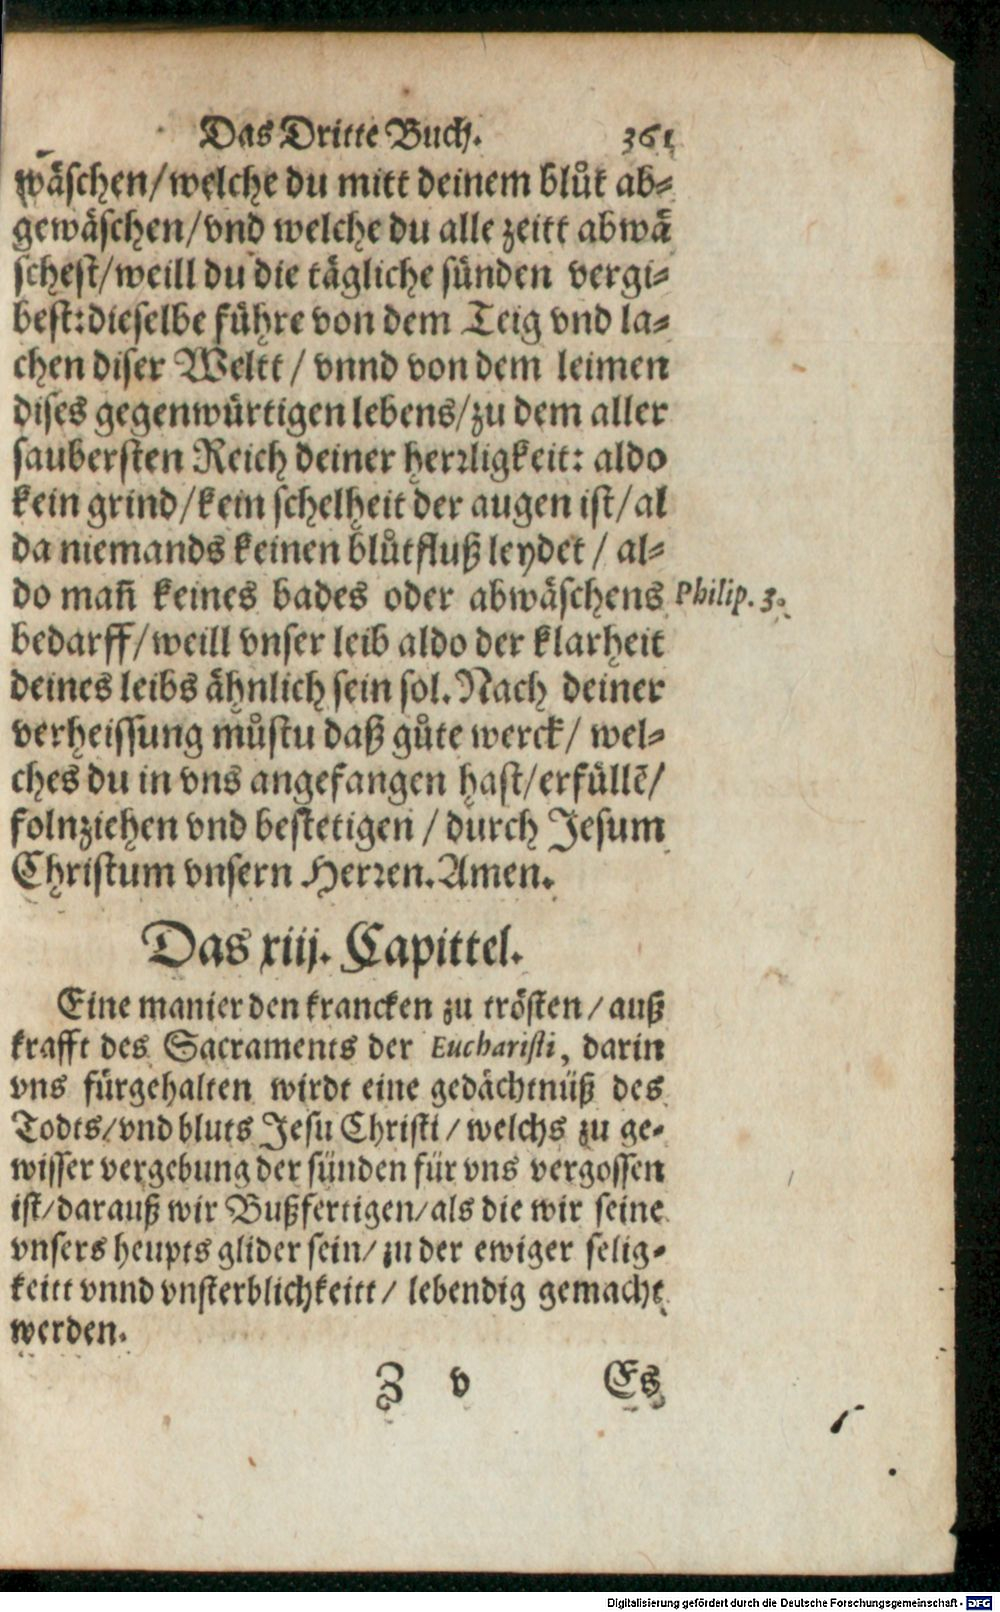 Das Dritte Buch. 361
wäschen/welche du mitt deinem blůt ab⸗
gewäschen/vnd welche du alle zeitt abwä
schest/weill du die tägliche sünden vergi⸗
best:dieselbe führe von dem Teig vnd la⸗
chen diser Weltt/ vnnd von dem leimen
dises gegenwürtigen lebens/zu dem aller
saubersten Reich deiner herꝛligkeit: aldo
kein grind/kein schelheit der augen ist/al
da niemands keinen blůtfluß leydet/ al⸗
do mañ keines bades oder abwäschens Philip. 3.
bedarff/weill vnser leib aldo der klarheit
deines leibs ähnlich sein sol. Nach deiner
verheissung můstu daß gůte werck/ wel⸗
ches du in vns angefangen hast/erfüllē/
folnziehen vnd bestetigen/ durch Jesum
Christum vnsern Herꝛen. Amen.
Das xiij. Capittel.
Eine manier den krancken zu trösten/ auß
krafft des Sacraments der Eucharisti, darin
vns fürgehalten wirdt eine gedächtnüß des
Todts/vnd bluts Jesu Christi/ welchs zu ge⸗
wisser vergebung der sünden für vns vergossen
ist/darauß wir Bußfertigen/als die wir seine
vnsers heupts glider sein/ zu der ewiger selig⸗
keitt vnnd vnsterblichkeitt/ lebendig gemacht
werden.
Z v Es
Digitalisierung gefördert durch die Deutsche Forschungsgemeinschaft - DFG